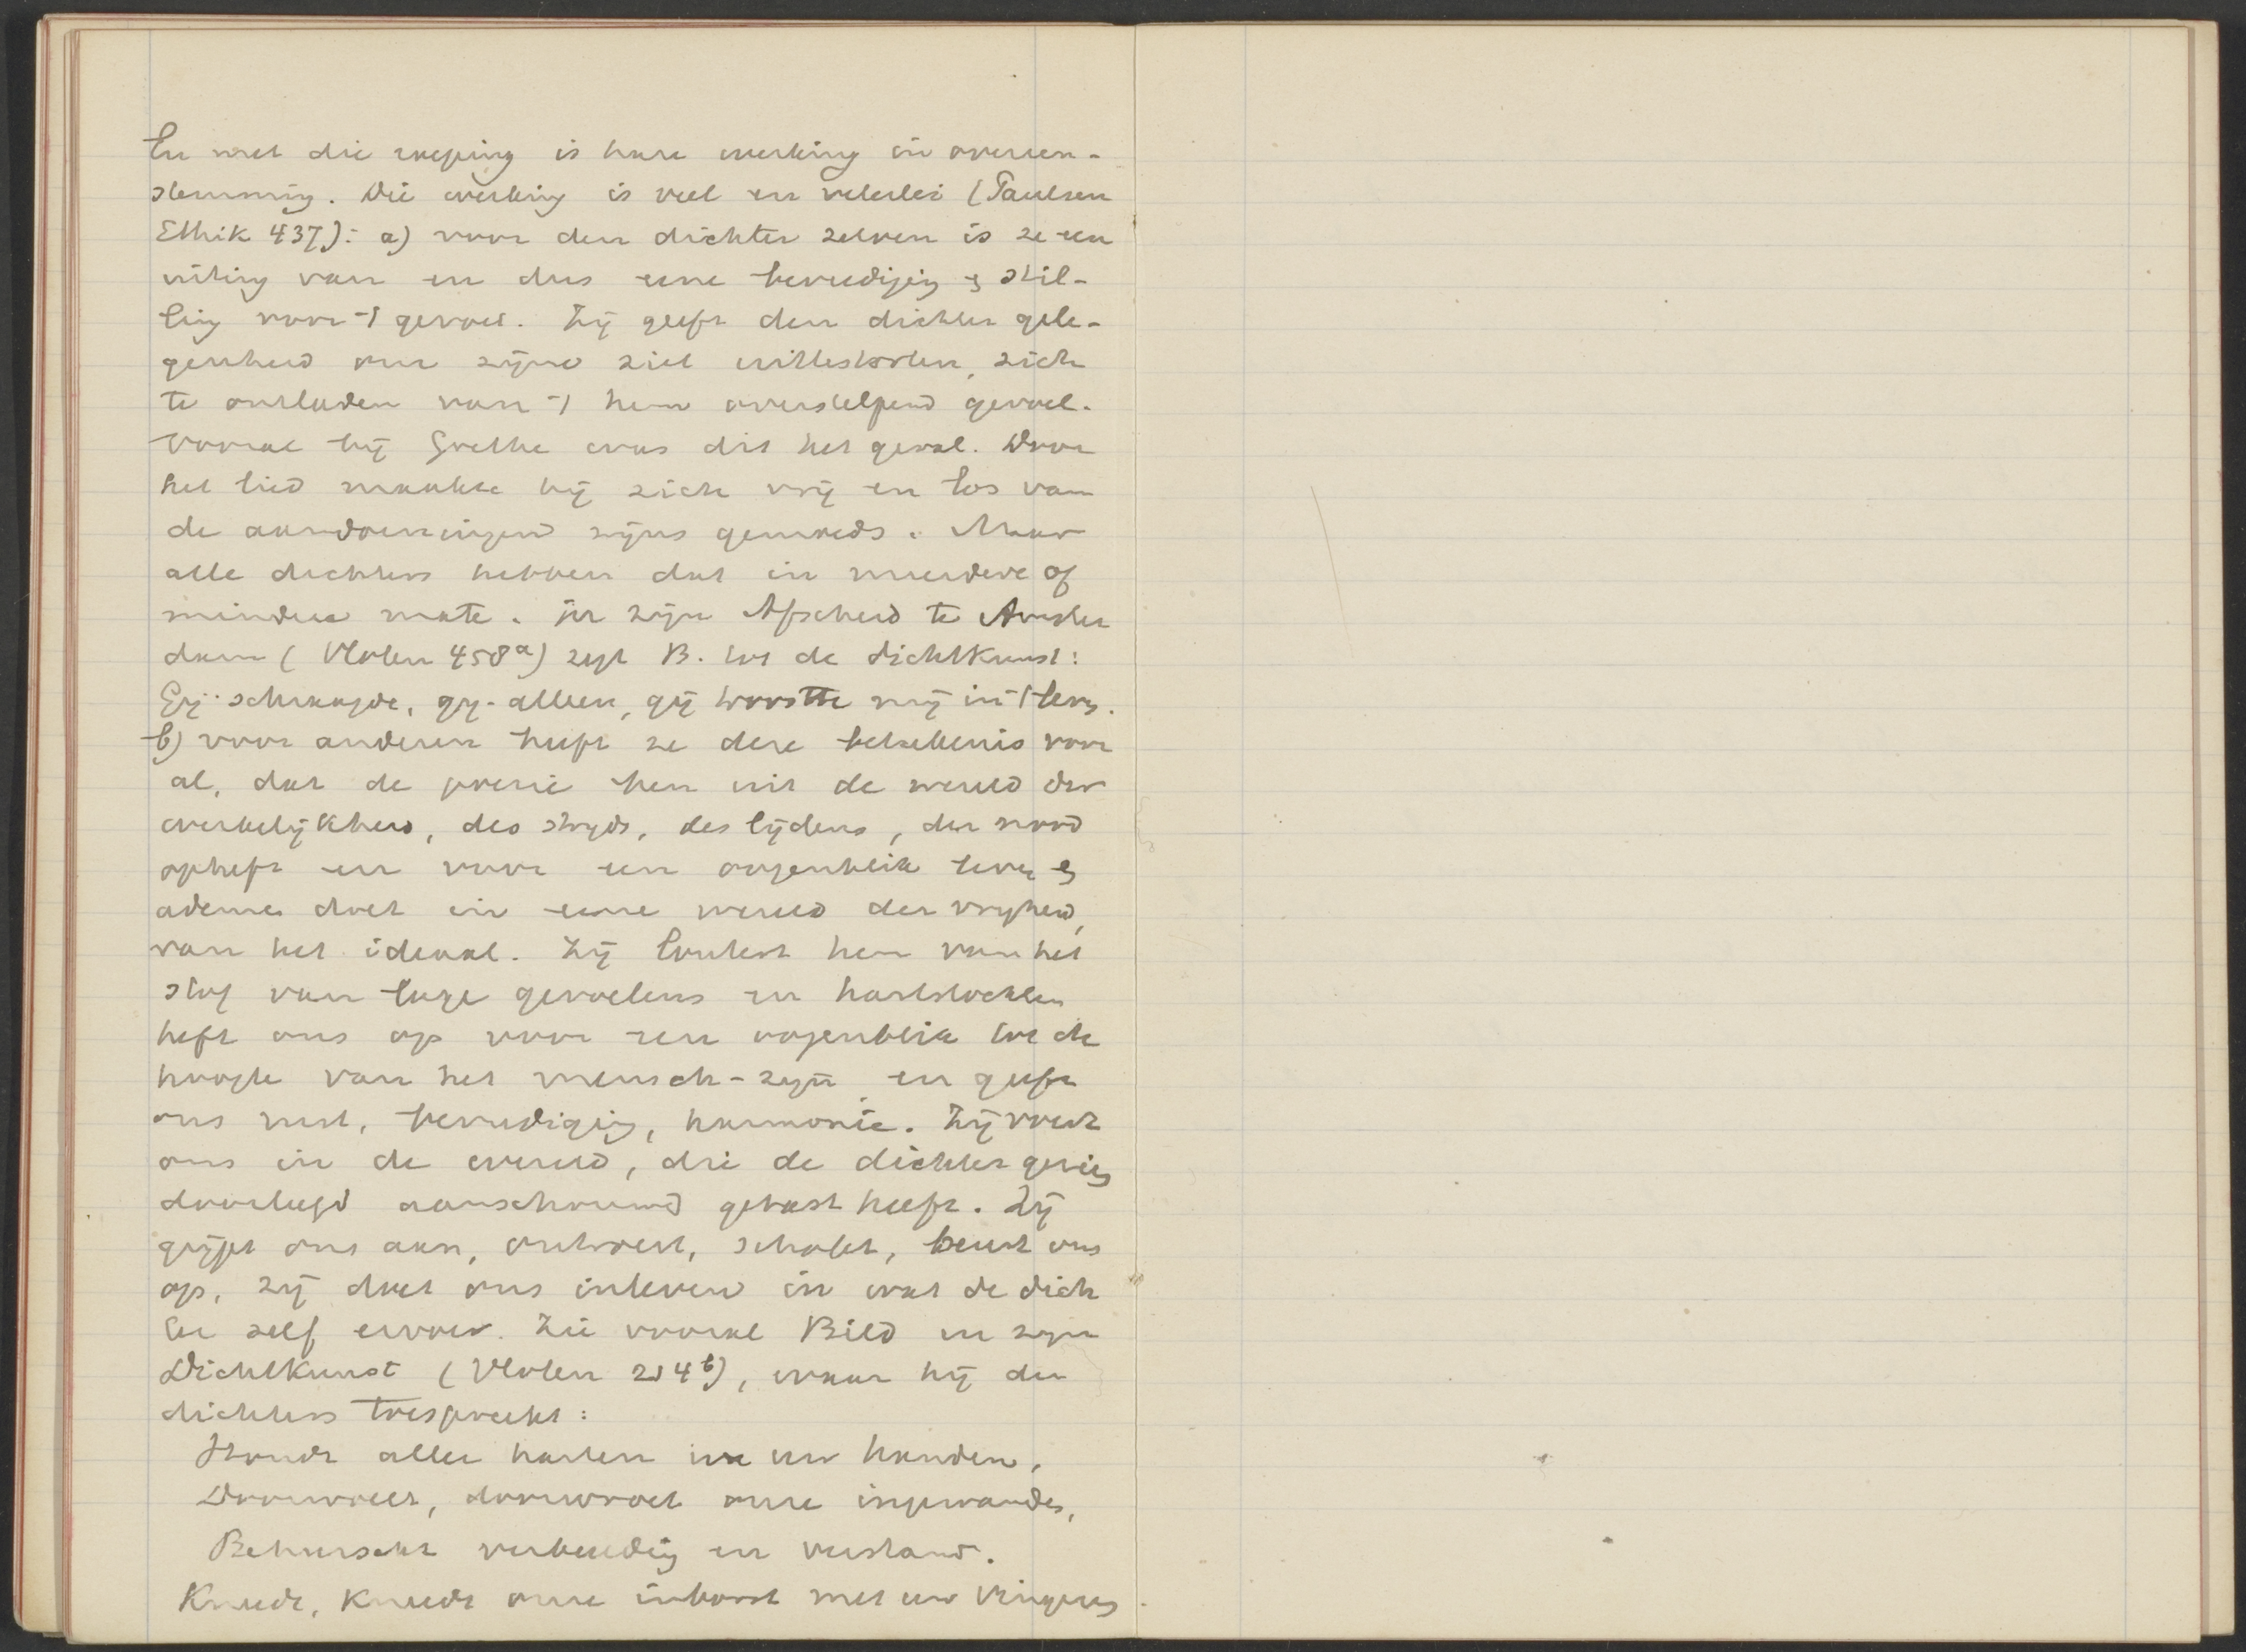 En met die roeping is hare werking in overeen-
stemming. Die werking is veel en velerlei (Paulsen
Ethik 437): a) voor den dichter zelven is ze een
uiting van en dus eene bevrediging & stil-
ling voor 't gevoel. Zij geeft den dichter gele-
genheid om zijne ziel uittestorten, zich
te ontladen van 't hem overstelpend gevoel.
Vooral bij Goethe was dit het geval. Door
het lied maakte hij zich vrij en los van
de aandoeningen zijns gemoeds. Maar
alle dichters hebben dat in meerdere of
mindere mate. In zijn Afscheid te Amster
dam (Vloten 458a) zegt B. tot de dichtkunst:
Gij schraagde, gij alleen, gij troostte mij in 't leven.
b) voor anderen heeft ze deze beteekenis voor
al, dat de poezie hen uit de wereld der
werkelijkheid, des strijds, des lijdens, der nood
opheft en voor een oogenblik leven &
ademen doet in eene wereld der vrijheid,
van het ideaal. Zij loutert hen van het
stof van lage gevoelens en hartstochten
heft ons op voor een oogenblik tot de
hoogte van het mensch-zijn en geeft
ons rust, bevrediging, harmonie. Zij voert
ons in de wereld, die de dichter
doorleefd aanschouwd getast heeft. Zij
grijpt ons aan, ontroert, schokt, beurt ons
op, zij doet ons inleven in wat de dich
ter zelf ervoer. Zie vooral Bild in zijn
Dichtkunst (Vloten 254b), waar hij den
dichters toespreekt:
Houdt aller harten in uw handen,
Doorvoelt, doorwroet onze ingewanden,
Beheerscht verbeelding en verstand.
Kneedt, kneedt onze inborst met uw vingeren